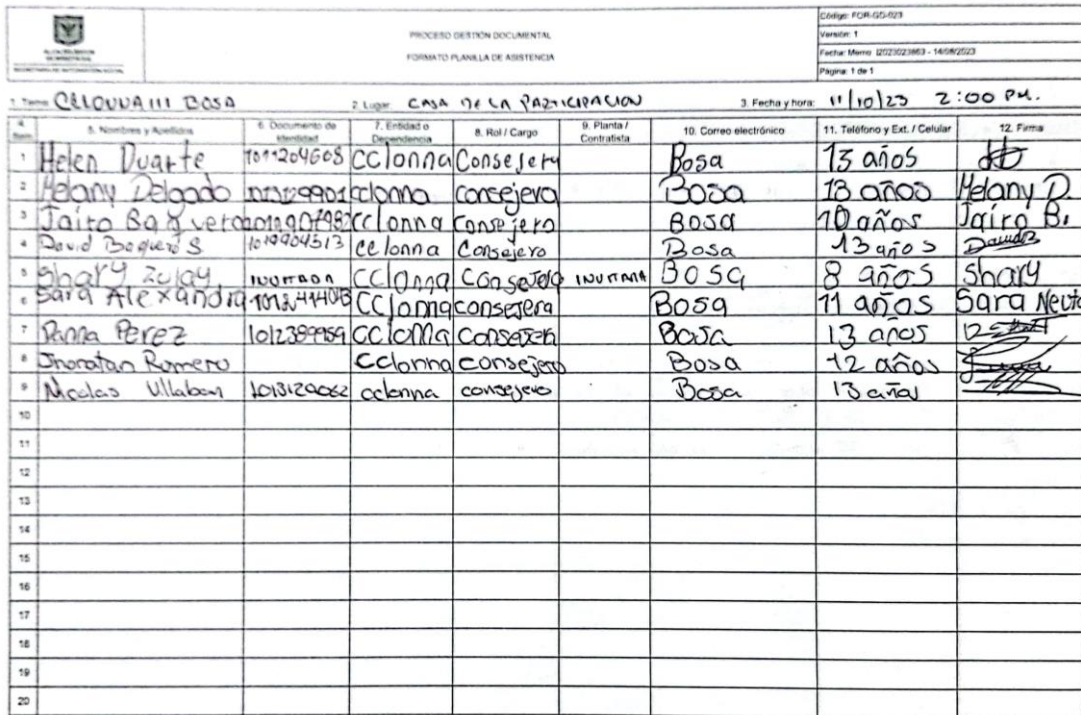 Código: FOR-GD-023
PROCESO GESTIÓN DOCUMENTAL
Versión: 1
FORMATO PLANILLA DE ASISTENCIA
Fecha: Memo I2023023863 - 14/08/2023
Página: 1 de 1
1. Tema: CCLONNA III BOSA 2. Lugar: CASA DE LA PARTICIPACION 3. Fecha y hora: 11/10/23 2:00 PM.
4. Item 5. Nombres y Apellidos 6. Documento de Identidad 7. Entidad o Dependencia 8. Rol / Cargo 9. Planta / Contratista 10. Correo electrónico 11. Teléfono y Ext. / Celular 12. Firma
1 Helen Duarte 1011204608 CClonna Consejera Bosa 13 años
2 Melany Delgado cclonna consejera Bosa 13 años Melany D.
3 Jairo CClonna Consejero Bosa 10 años Jairo B.
4 David Baquero S 1019904513 cclonna Consejero Bosa 13 años
5 Shary Zulay INVITADA CClonna Consejera INVITADA Bosa 8 años Shary
6 Sara Alexandra CClonna consejera Bosa 11 años Sara
7 Danna Perez 1012389959 CClonna Consejera Bosa 13 años
8 Jhonatan Romero CClonna consejero Bosa 12 años
9 Nicolas Villabon 1013120062 cclonna consejero Bosa 13 años
10
11
12
13
14
15
16
17
18
19
20